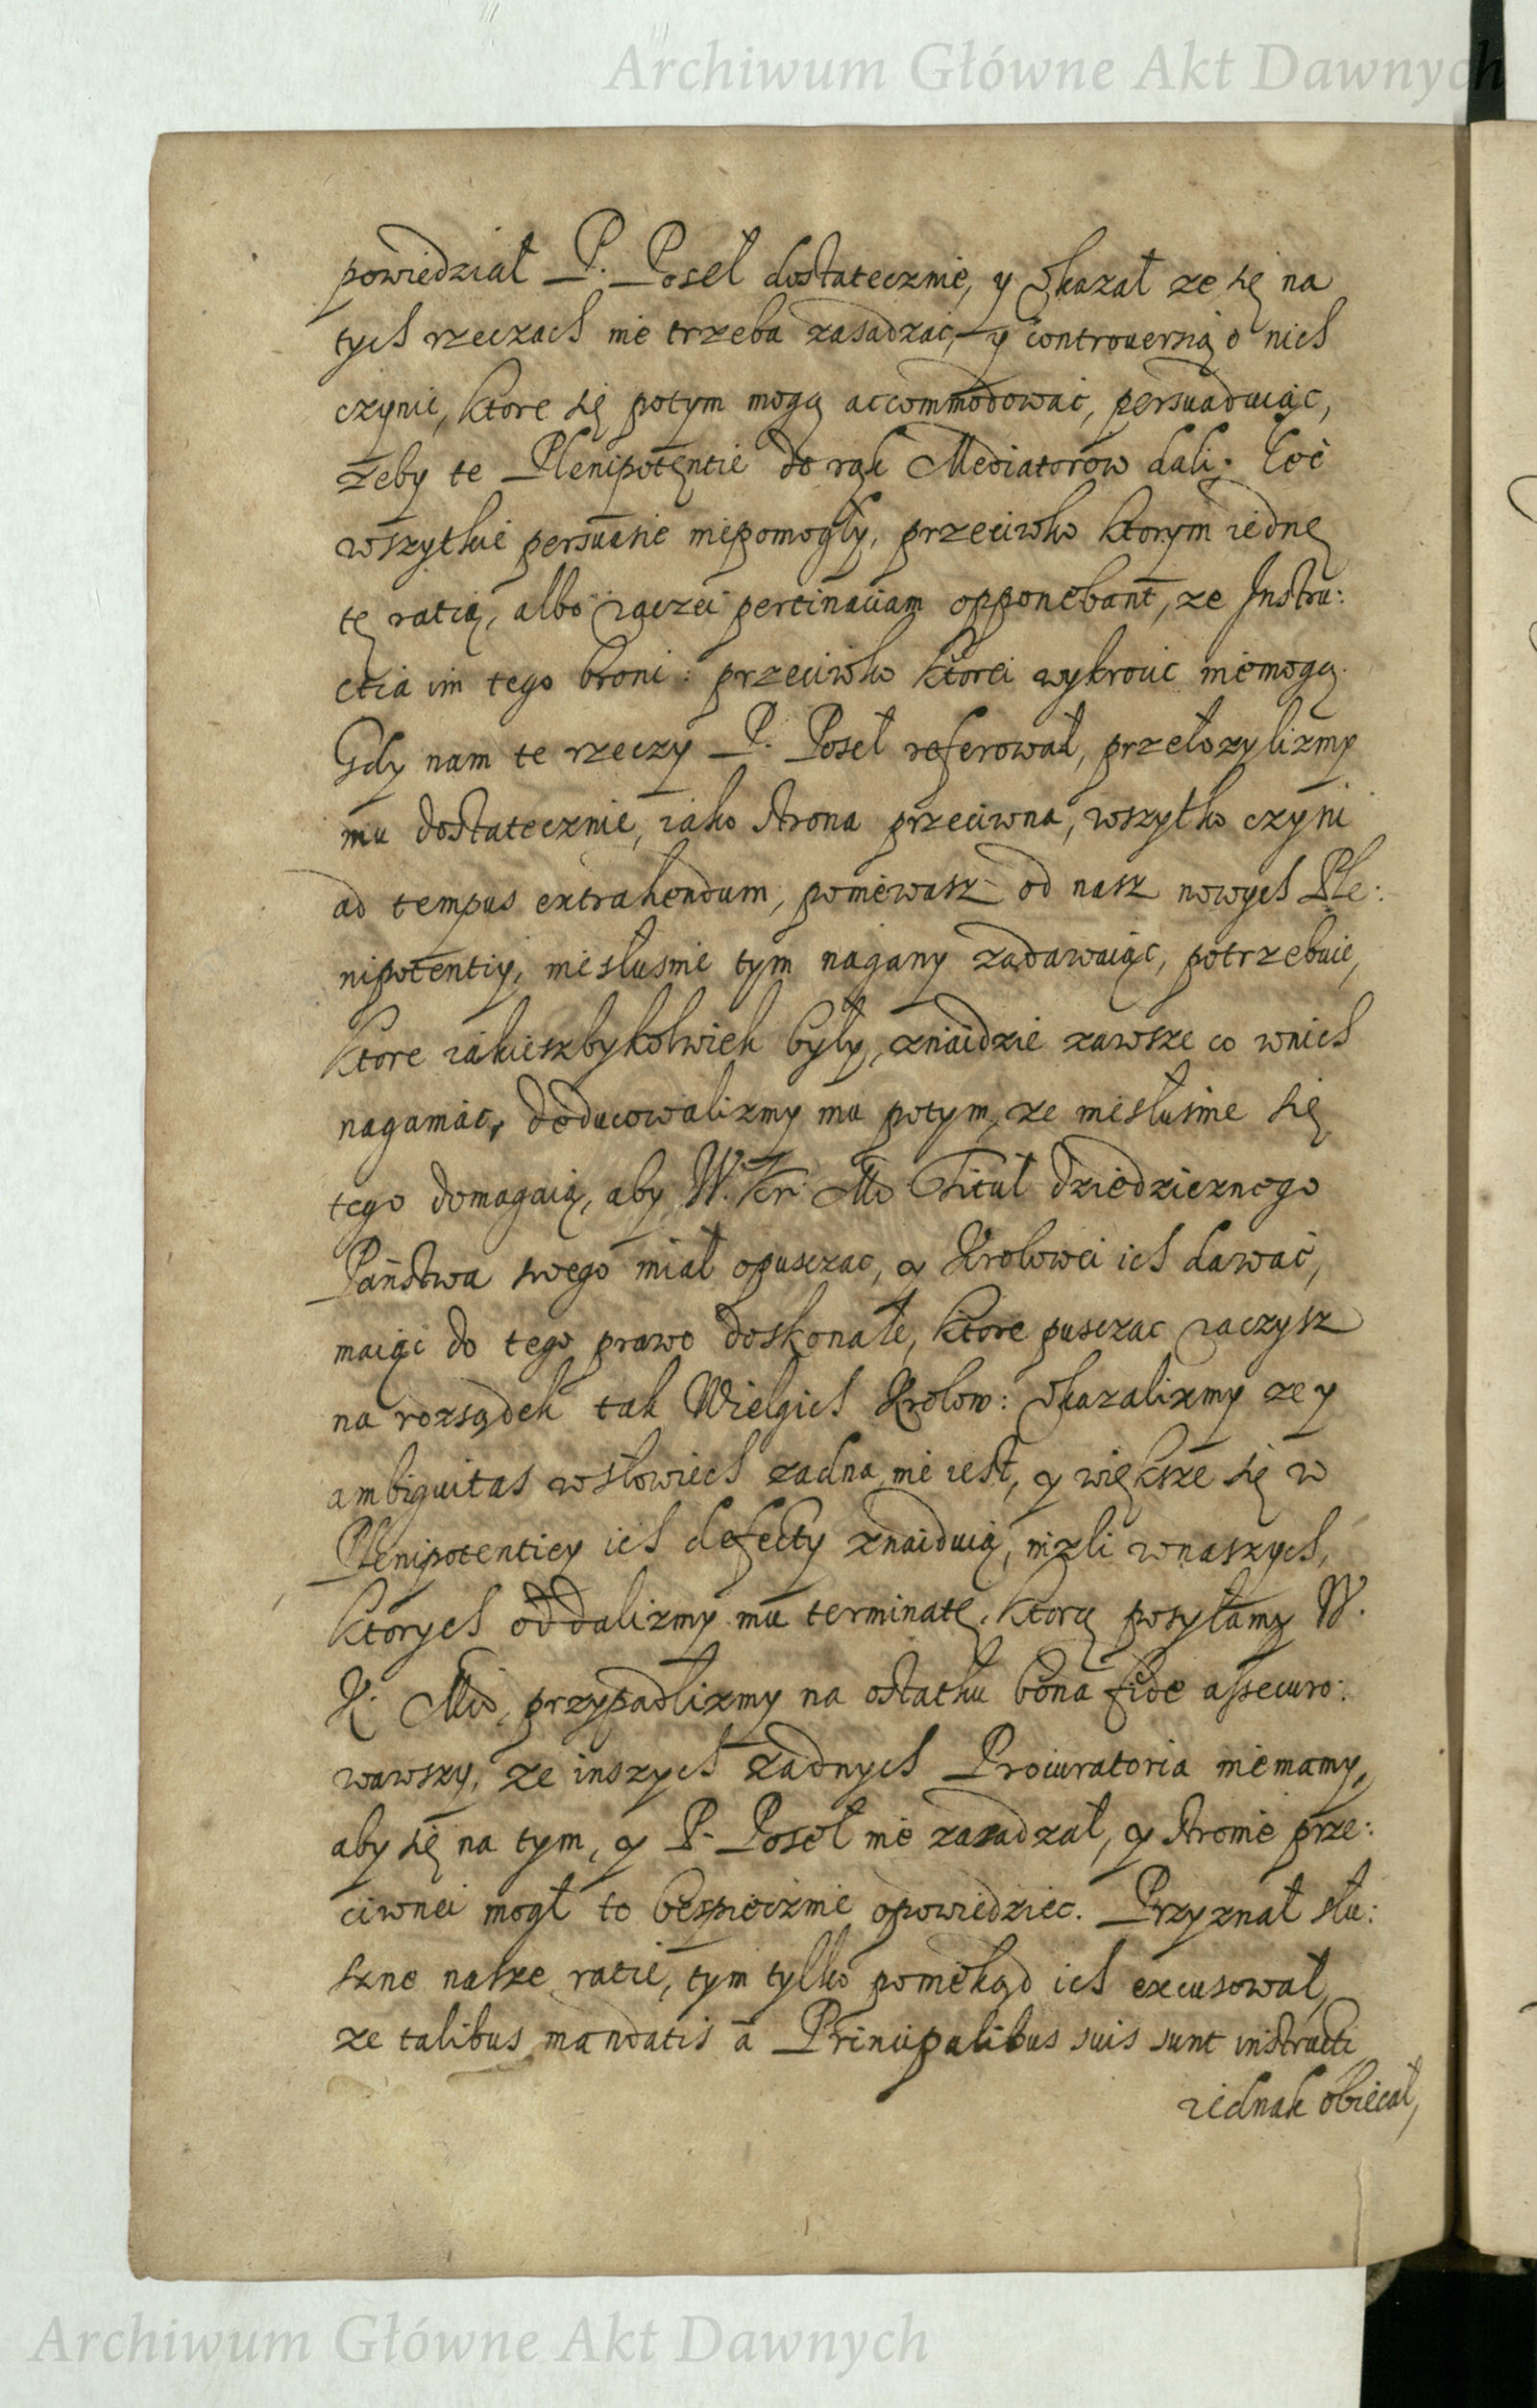 Archiwum Główne Akt Dawnych
powiedział P. Poseł dostatecznie, y vkazał ze się na
tych rzeczach nie trzeba zasadzac, y controuersią o nich
czynic, ktore się potym mogą accommodowac, persuaduiąc,
zeby te Plenipotentie do rąk Mediatorow dali;
wszytkie persuasie niepomogły, przeciwko ktorym iednę
tę ratią, albo raczei pertinaciam opponebant, ze Instru:
ctia im tego broni: przeciwko ktorei wykroic niemogą.
Gdy nam te rzeczy P. Poseł referował, przełozylizmy
mu dostatecznie, iako strona przeciwna, wszytko czyni
ad tempus extrahendum, poniewasz od nasz nowych Ple:
nipotentiy, niesłusnie tym nagany zadawaiąc, potrzebuie,
ktore iakieszbykolwiek były, znaidzie zawsze co wnich
naganiac, deducowalizmy mu potym, ze niesłusnie się
tego domagaią, aby W. Kr. Mć Titul dziedzicznego
Państwa swego miał opusczac, y Krolowei ich dawać,
maiąc do tego prawo doskonałe, ktore pusczac raczysz
na rozsądek tak Wielgich Krolow: vkazalizmy ze y
ambiguitas wsłowiech zadna nie iest, y większe się w
Plenipotentiey ich defecty znaiduią, nizli wnaszych,
ktorych oddalizmy mu terminatę, ktorą posyłamy W.
K. Mći, przypadlizmy na ostatku bona fide assecuro:
wawszy, ze inszych zadnych Procuratoria niemamy,
aby się na tym, y P. Poseł nie zasadzał, y stronie prze:
ciwnei mogł to bespiecznie opowiedziec. Przyznał słu:
szne nasze ratie, tym tylko poniekąd ich excusował,
ze talibus mandatis a Principalibus suis sunt instructi
iednak obiecał,
Archiwum Główne Akt Dawnych